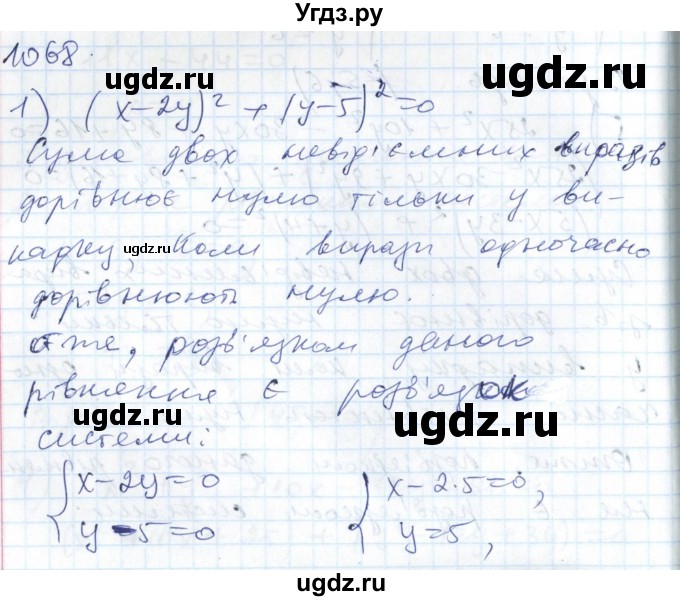 Угдз.ру
1068.
1) (x-2y)² + (y-5)² = 0
Сума двох невід'ємних виразів
дорівнює нулю тільки у ви-
падку, коли вирази одночасно
дорівнюють нулю.
Отже, розв'язком даного
рівняння є розв'язок
системи:
{ x-2y=0 { x-2·5=0,
{ y-5=0 { y=5,
ugdz.ru
ugdz.ru
ugdz.ru
ugdz.ru
ugdz.ru
ugdz.ru
ugdz.ru
ugdz.ru